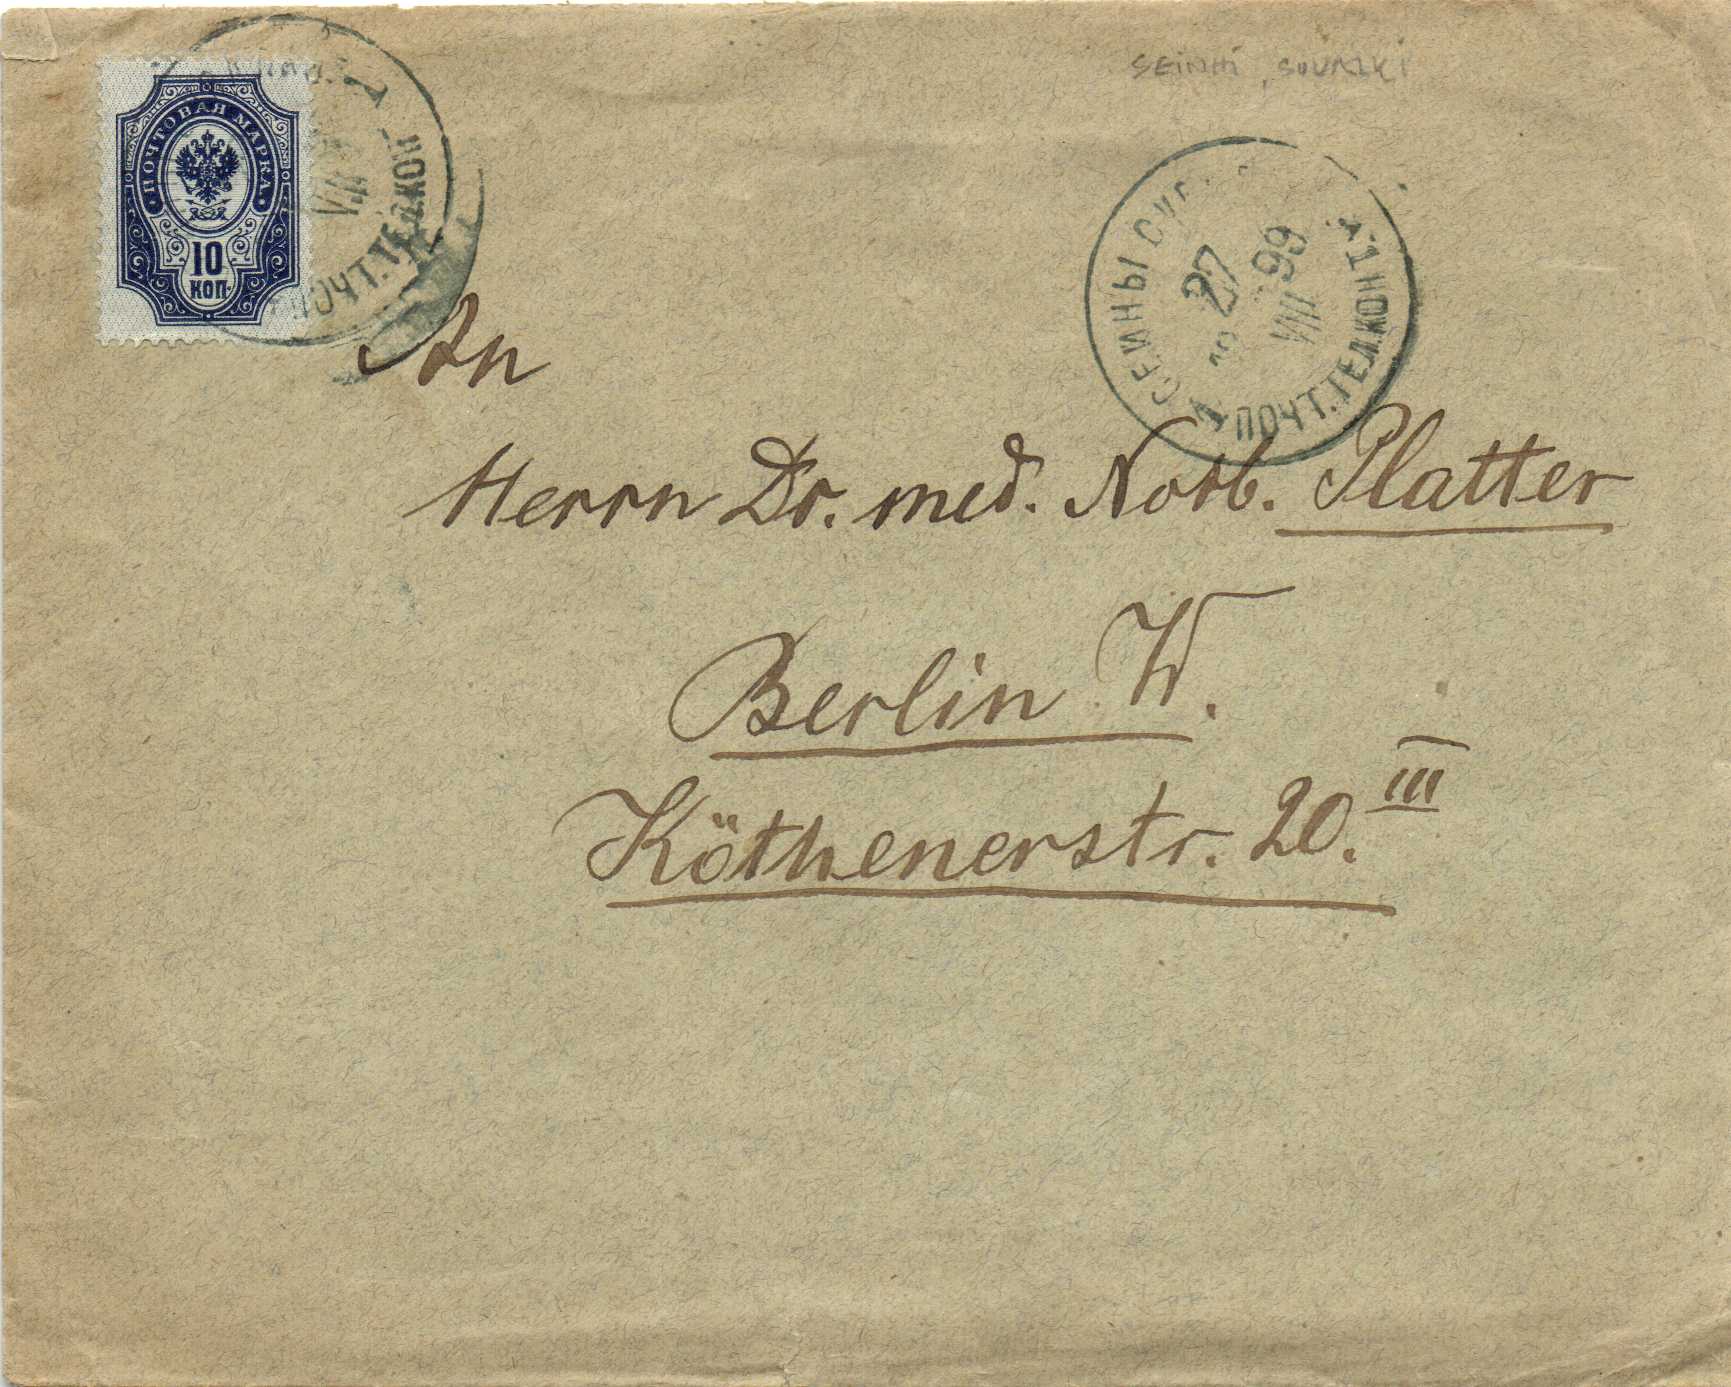 SEINIII, SOUALKI
ПОЧТОВАЯ МАРКА
10
КОП.
ПОЧТ. ТЕЛ. КОН
VIII
1
СЕЙНЫ СУ
27
VIII 99
1 ПОЧТ. ТЕЛ. КОНТ. 1
An
Herrn Dr. med. Norb. Platter
Berlin W.
Köthenerstr. 20. III